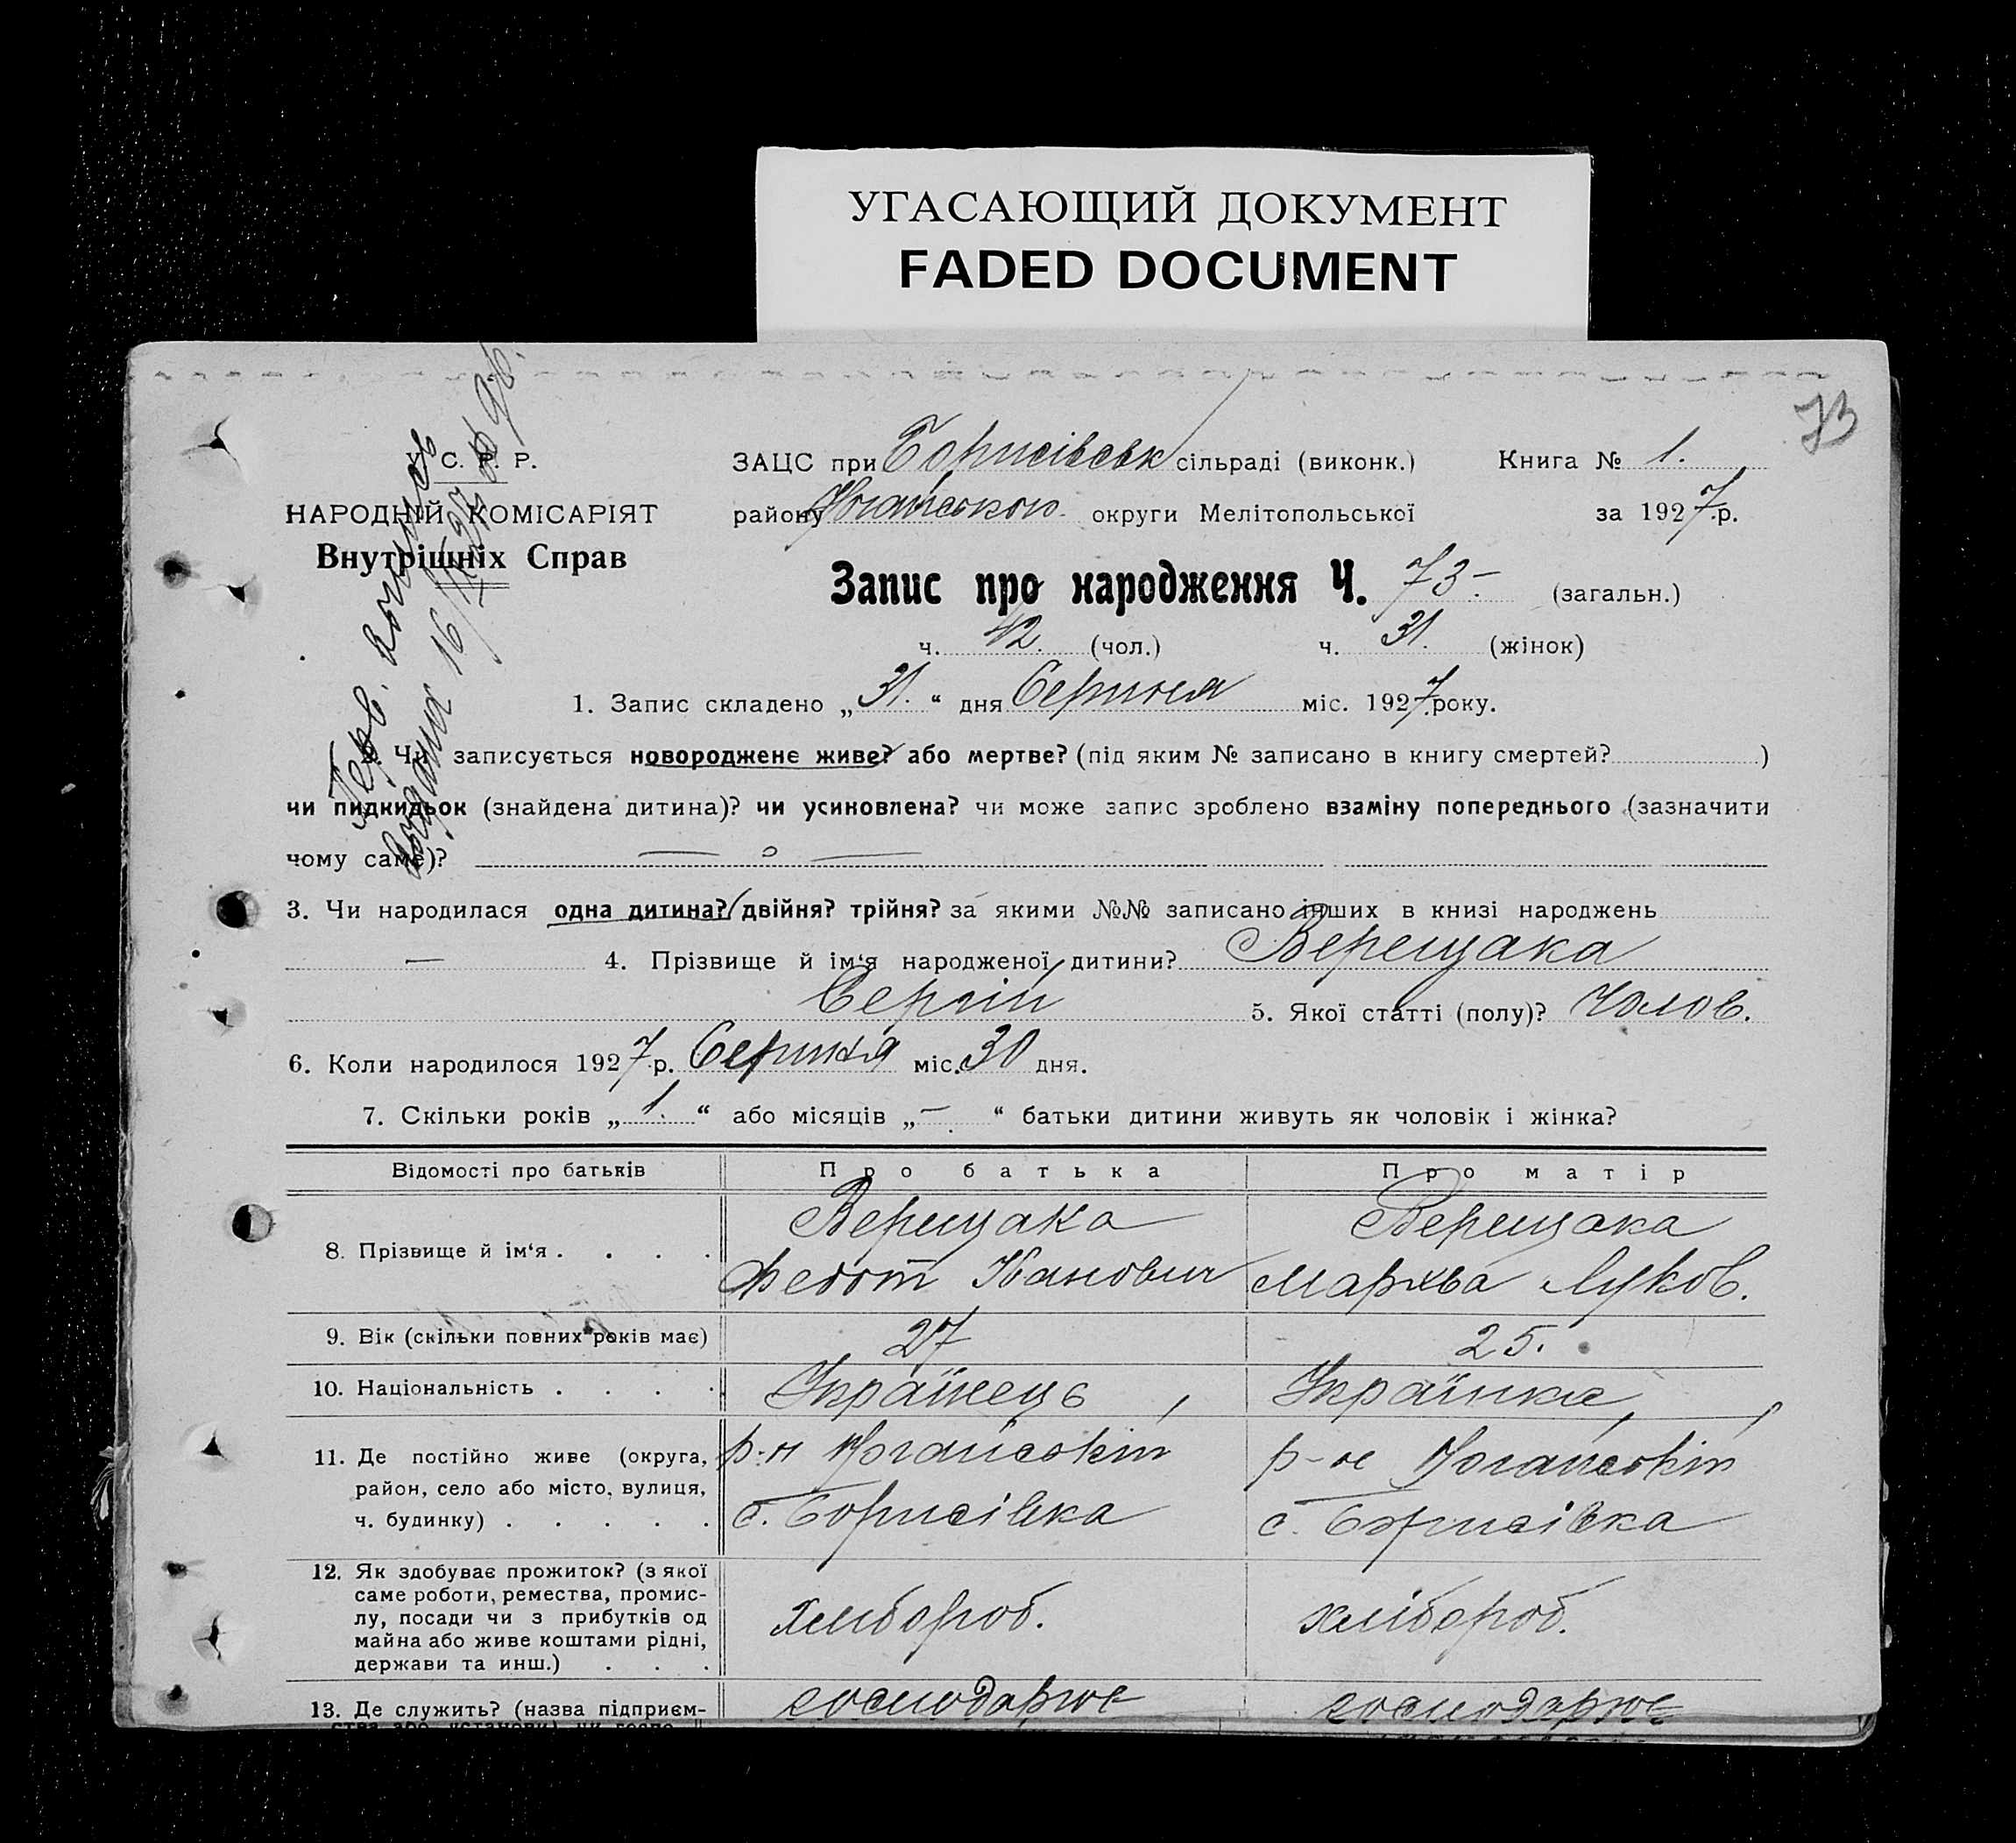 УГАСАЮЩИЙ ДОКУМЕНТ
FADED DOCUMENT
73
У. С. Р. Р.
НАРОДНІЙ КОМІСАРІЯТ
Внутрішніх Справ
ЗАЦС при Борисівськ сільраді (виконк.) Книга № 1.
району Ногайського округи Мелітопольської за 1927 р.
Запис про народження Ч. 73- (загальн.)
ч. 42. (чол.) ч. 31. (жінок)
1. Запис складено „31.“ дня Серпня міс. 1927 року.
2. Чи записується новороджене живе? або мертве? (під яким № записано в книгу смертей? )
чи пидкидьок (знайдена дитина)? чи усиновлена? чи може запис зроблено взаміну попереднього (зазначити
чому саме)?
3. Чи народилася одна дитина? двійня? трійня? за якими №№ записано інших в книзі народжень
— 4. Прізвище й ім‘я народженої дитини? Верещака
Сергій 5. Якої статті (полу)? Чолов.
6. Коли народилося 1927 р. Серпня міс. 30 дня.
7. Скільки років „1.“ або місяців „—“ батьки дитини живуть як чоловік і жінка?
Відомості про батьків Про батька Про матір
8. Прізвище й ім‘я . . . . Верещака Верещака
Федот Іванович Мархва Луков.
9. Вік (скільки повних років має) 27 25.
10. Національність . . . . Українець Українка
11. Де постійно живе (округа, р-н Ногайскій р-н Ногайскій
район, село або місто, вулиця,
ч. будинку) . . . . . с. Борисівка с. Борисівка
12. Як здобуває прожиток? (з якої
саме роботи, ремества, промис-
лу, посади чи з прибутків од хлибороб. хлібороб.
майна або живе коштами рідні,
держави та инш.) . . .
13. Де служить? (назва підприєм- господарює господарює